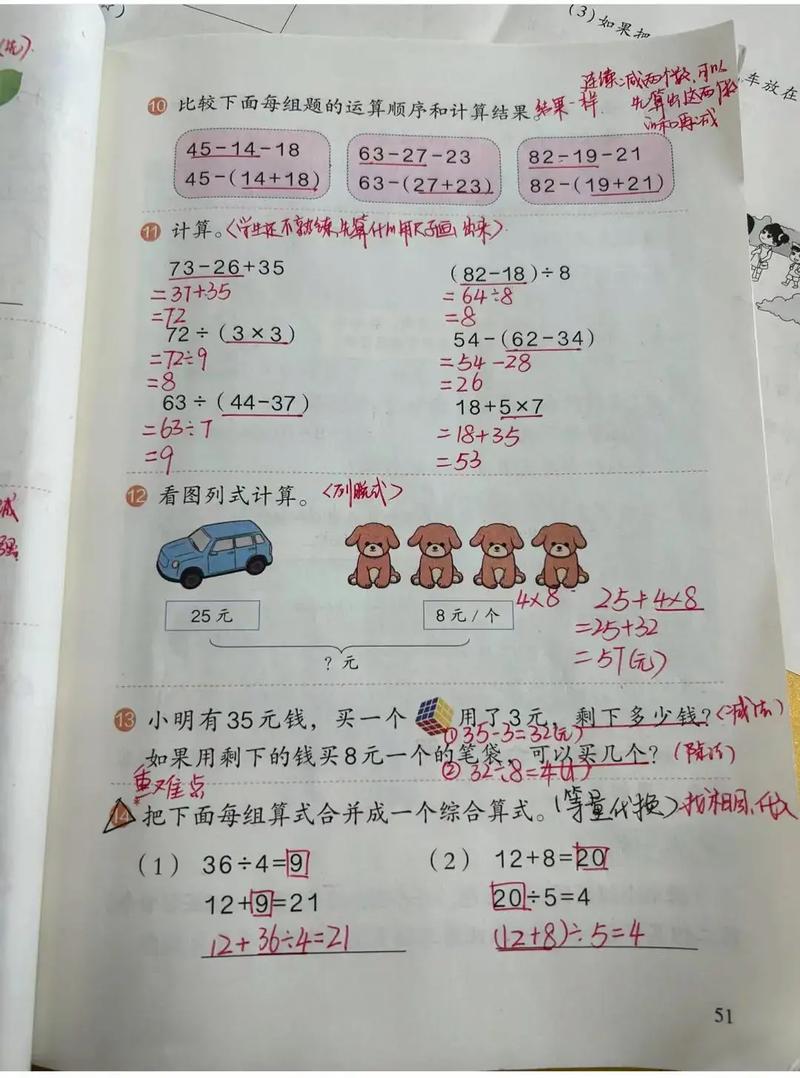 (3)如果把
车放在
连续减两个数,可以
先算出这两个数
的和再减
10 比较下面每组题的运算顺序和计算结果。结果一样.
45-14-18 63-27-23 82-19-21
45-(14+18) 63-(27+23) 82-(19+21)
11 计算。(学生还不熟练,先算什么用尺子画出来)
73-26+35 (82-18)÷8
=37+35 =64÷8
=72 =8
72÷(3×3) 54-(62-34)
=72÷9 =54-28
=8 =26
63÷(44-37) 18+5×7
=63÷7 =18+35
=9 =53
12 看图列式计算。(列脱式)
25元 8元/个 4×8 25+4×8
=25+32
?元 =57(元)
13 小明有35元钱,买一个 用了3元,剩下多少钱?(减法)
①35-3=32(元)
如果用剩下的钱买8元一个的笔袋,可以买几个?(除法)
②32÷8=4(个)
重难点
14 把下面每组算式合并成一个综合算式。(等量代换)找相同,代入
(1) 36÷4=9 (2) 12+8=20
12+9=21 20÷5=4
12+36÷4=21 (12+8)÷5=4
51
减